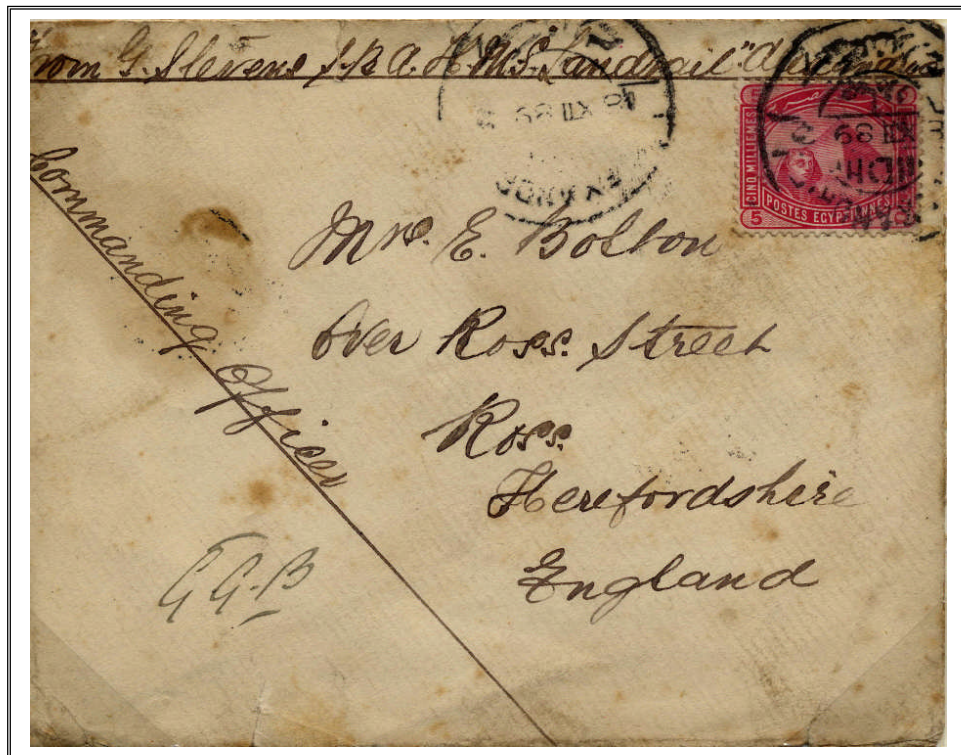 From G. Stevens S.B.A. H.M.S. "Landrail"
Commanding Officer
Mrs. E. Bolton
Over Ross. Street
Ross.
Herefordshire
England
G G.B
CINQ MILLIEMES
5 POSTES EGYPTIENNES
XII 99
XII 99